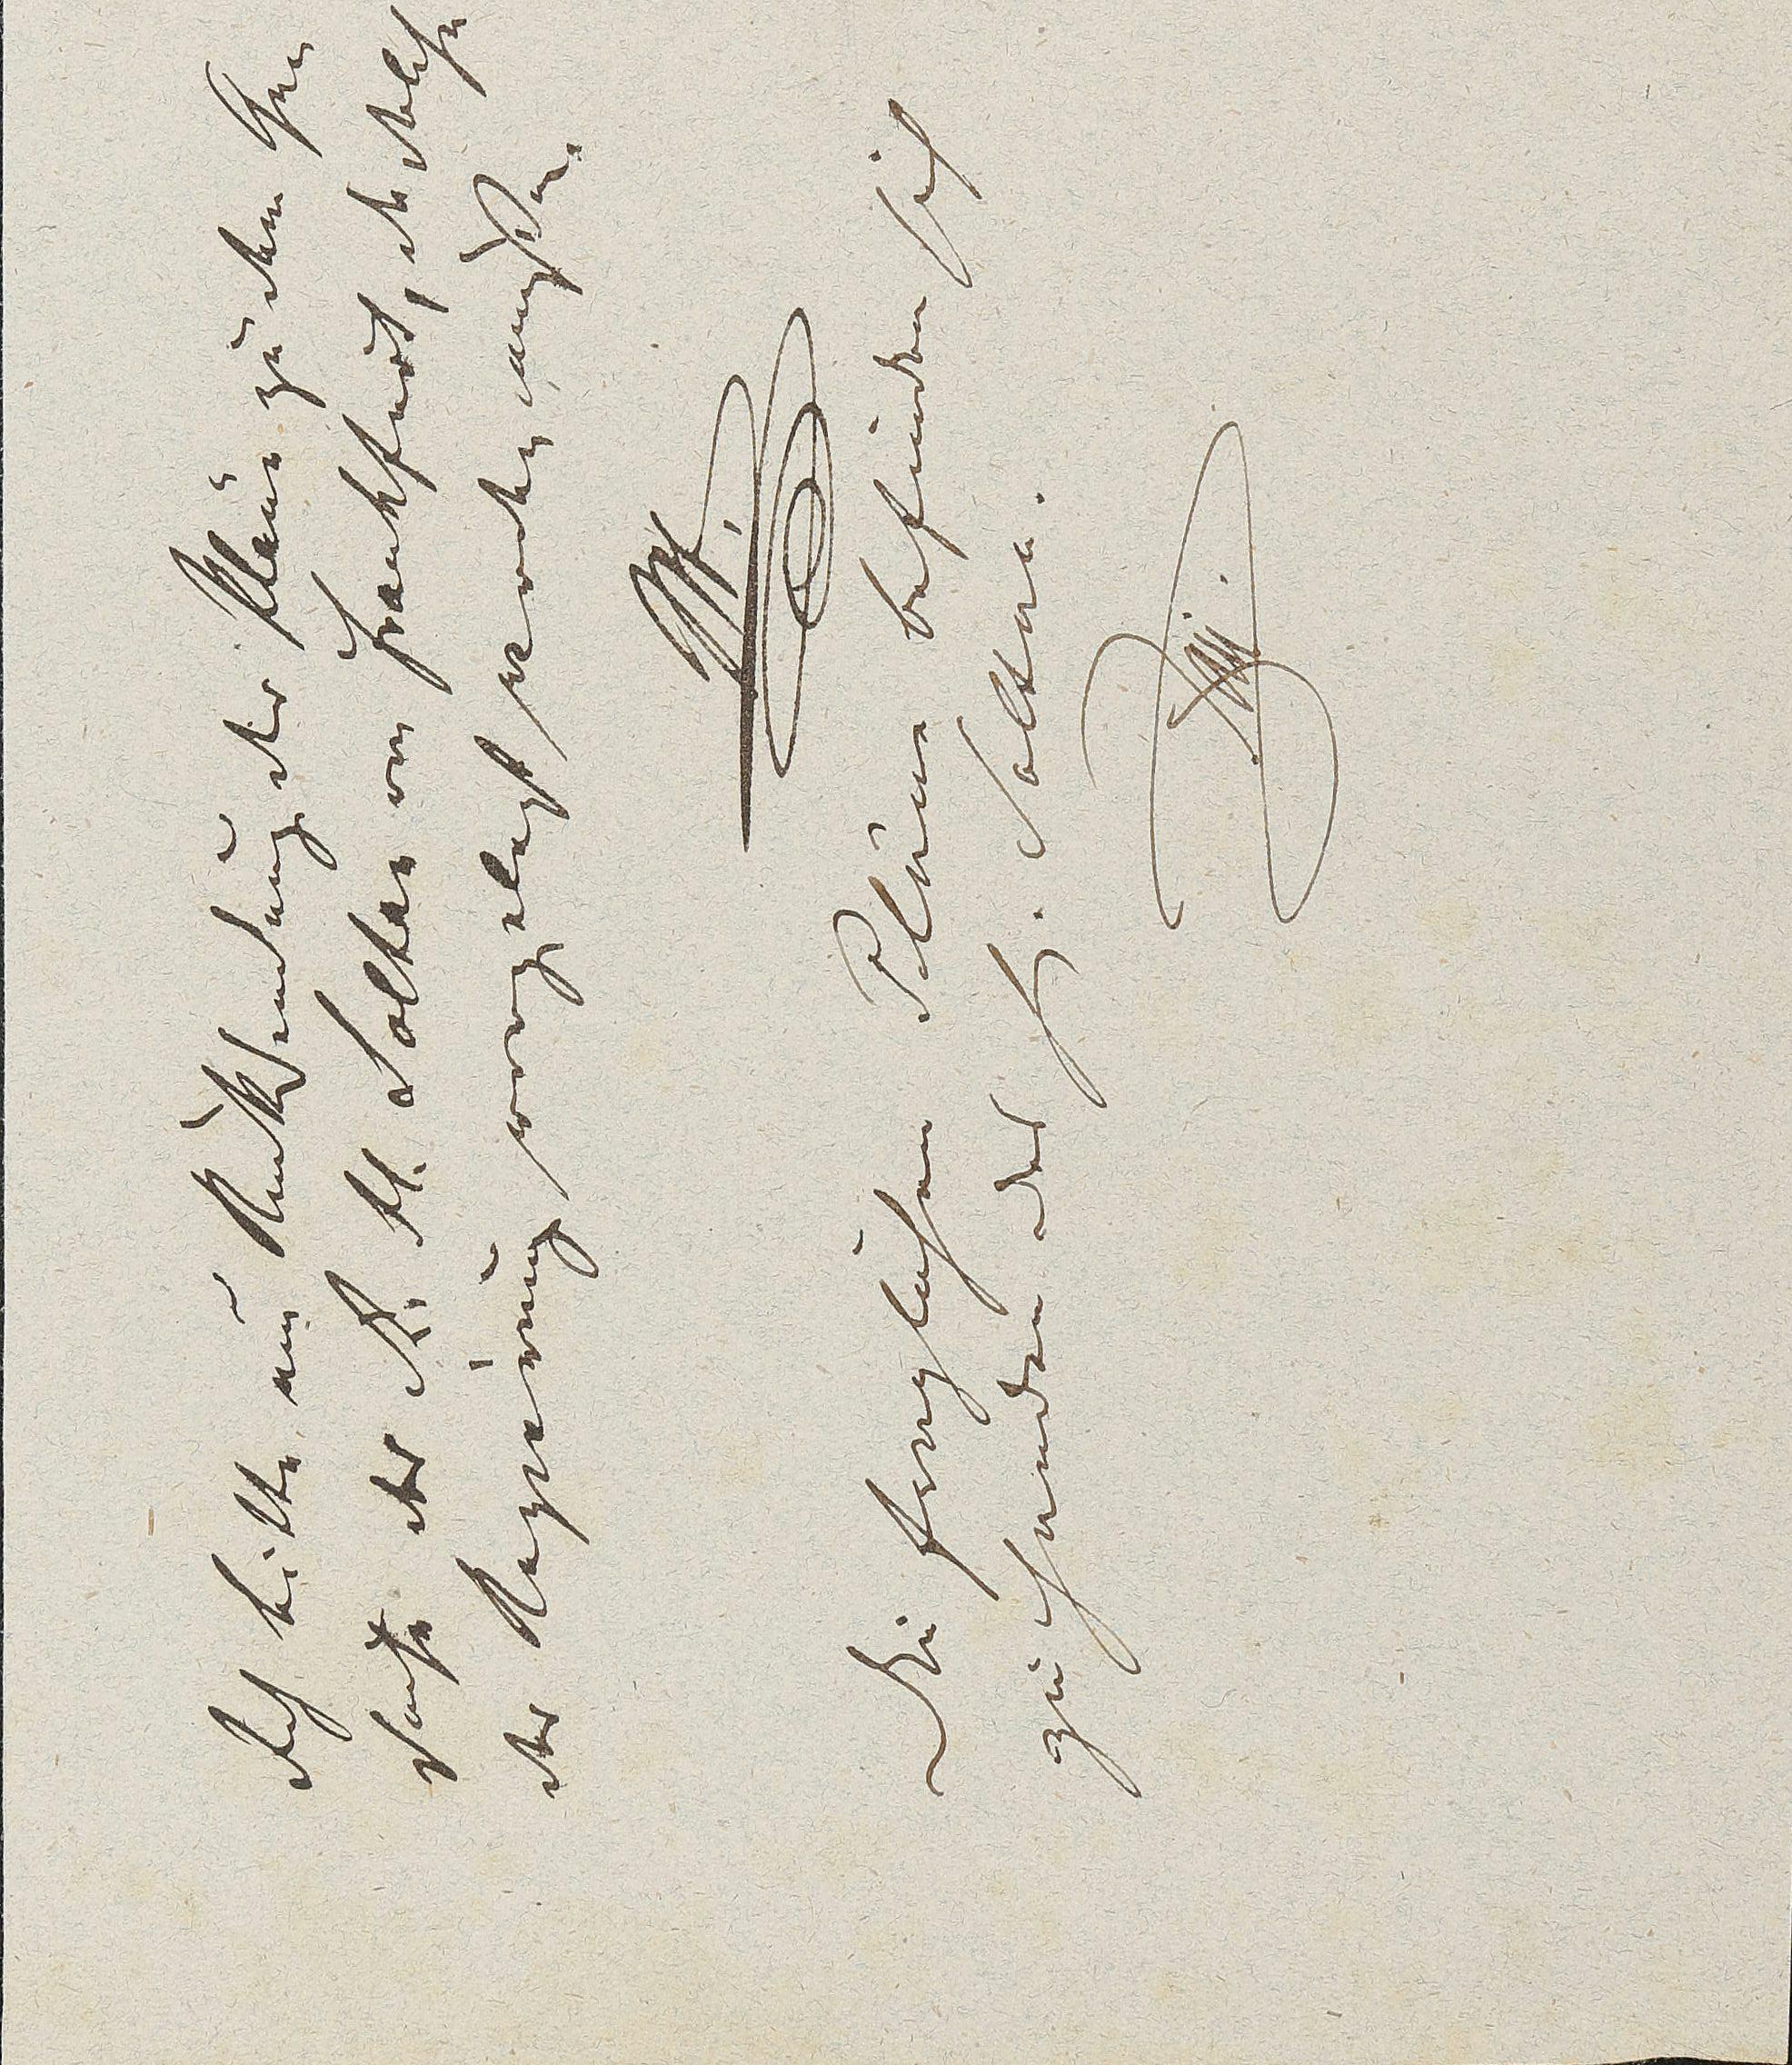 Ich bitte um Rücksendung der Pläne zu dem Ge-
suche der P. H. Solten von Frankfurt, da dieselbe
der Regierung vorgelegt werden müssen.
Die fraglichen Pläne befinden sich
zu Handen des H. Solten.